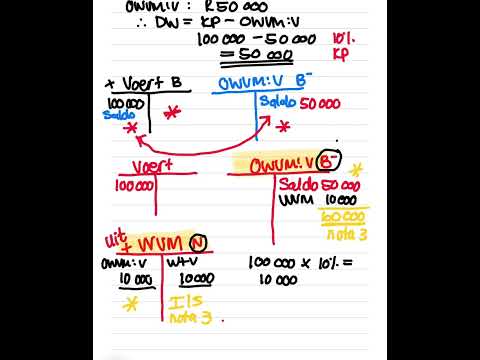 OWVM:V : R50 000
∴ DW = KP - OWVM:V
100 000 - 50 000 10%
= 50 000 KP
+ Voert B OWVM:V B⁻
100 000 Saldo 50 000
Saldo
Voert OWVM:V B⁻
100 000 Saldo 50 000
WVM 10 000
60 000
nota 3
uit
+ WVM N
OWVM:V W+V 100 000 x 10% =
10 000 10 000 10 000
I/S
nota 3